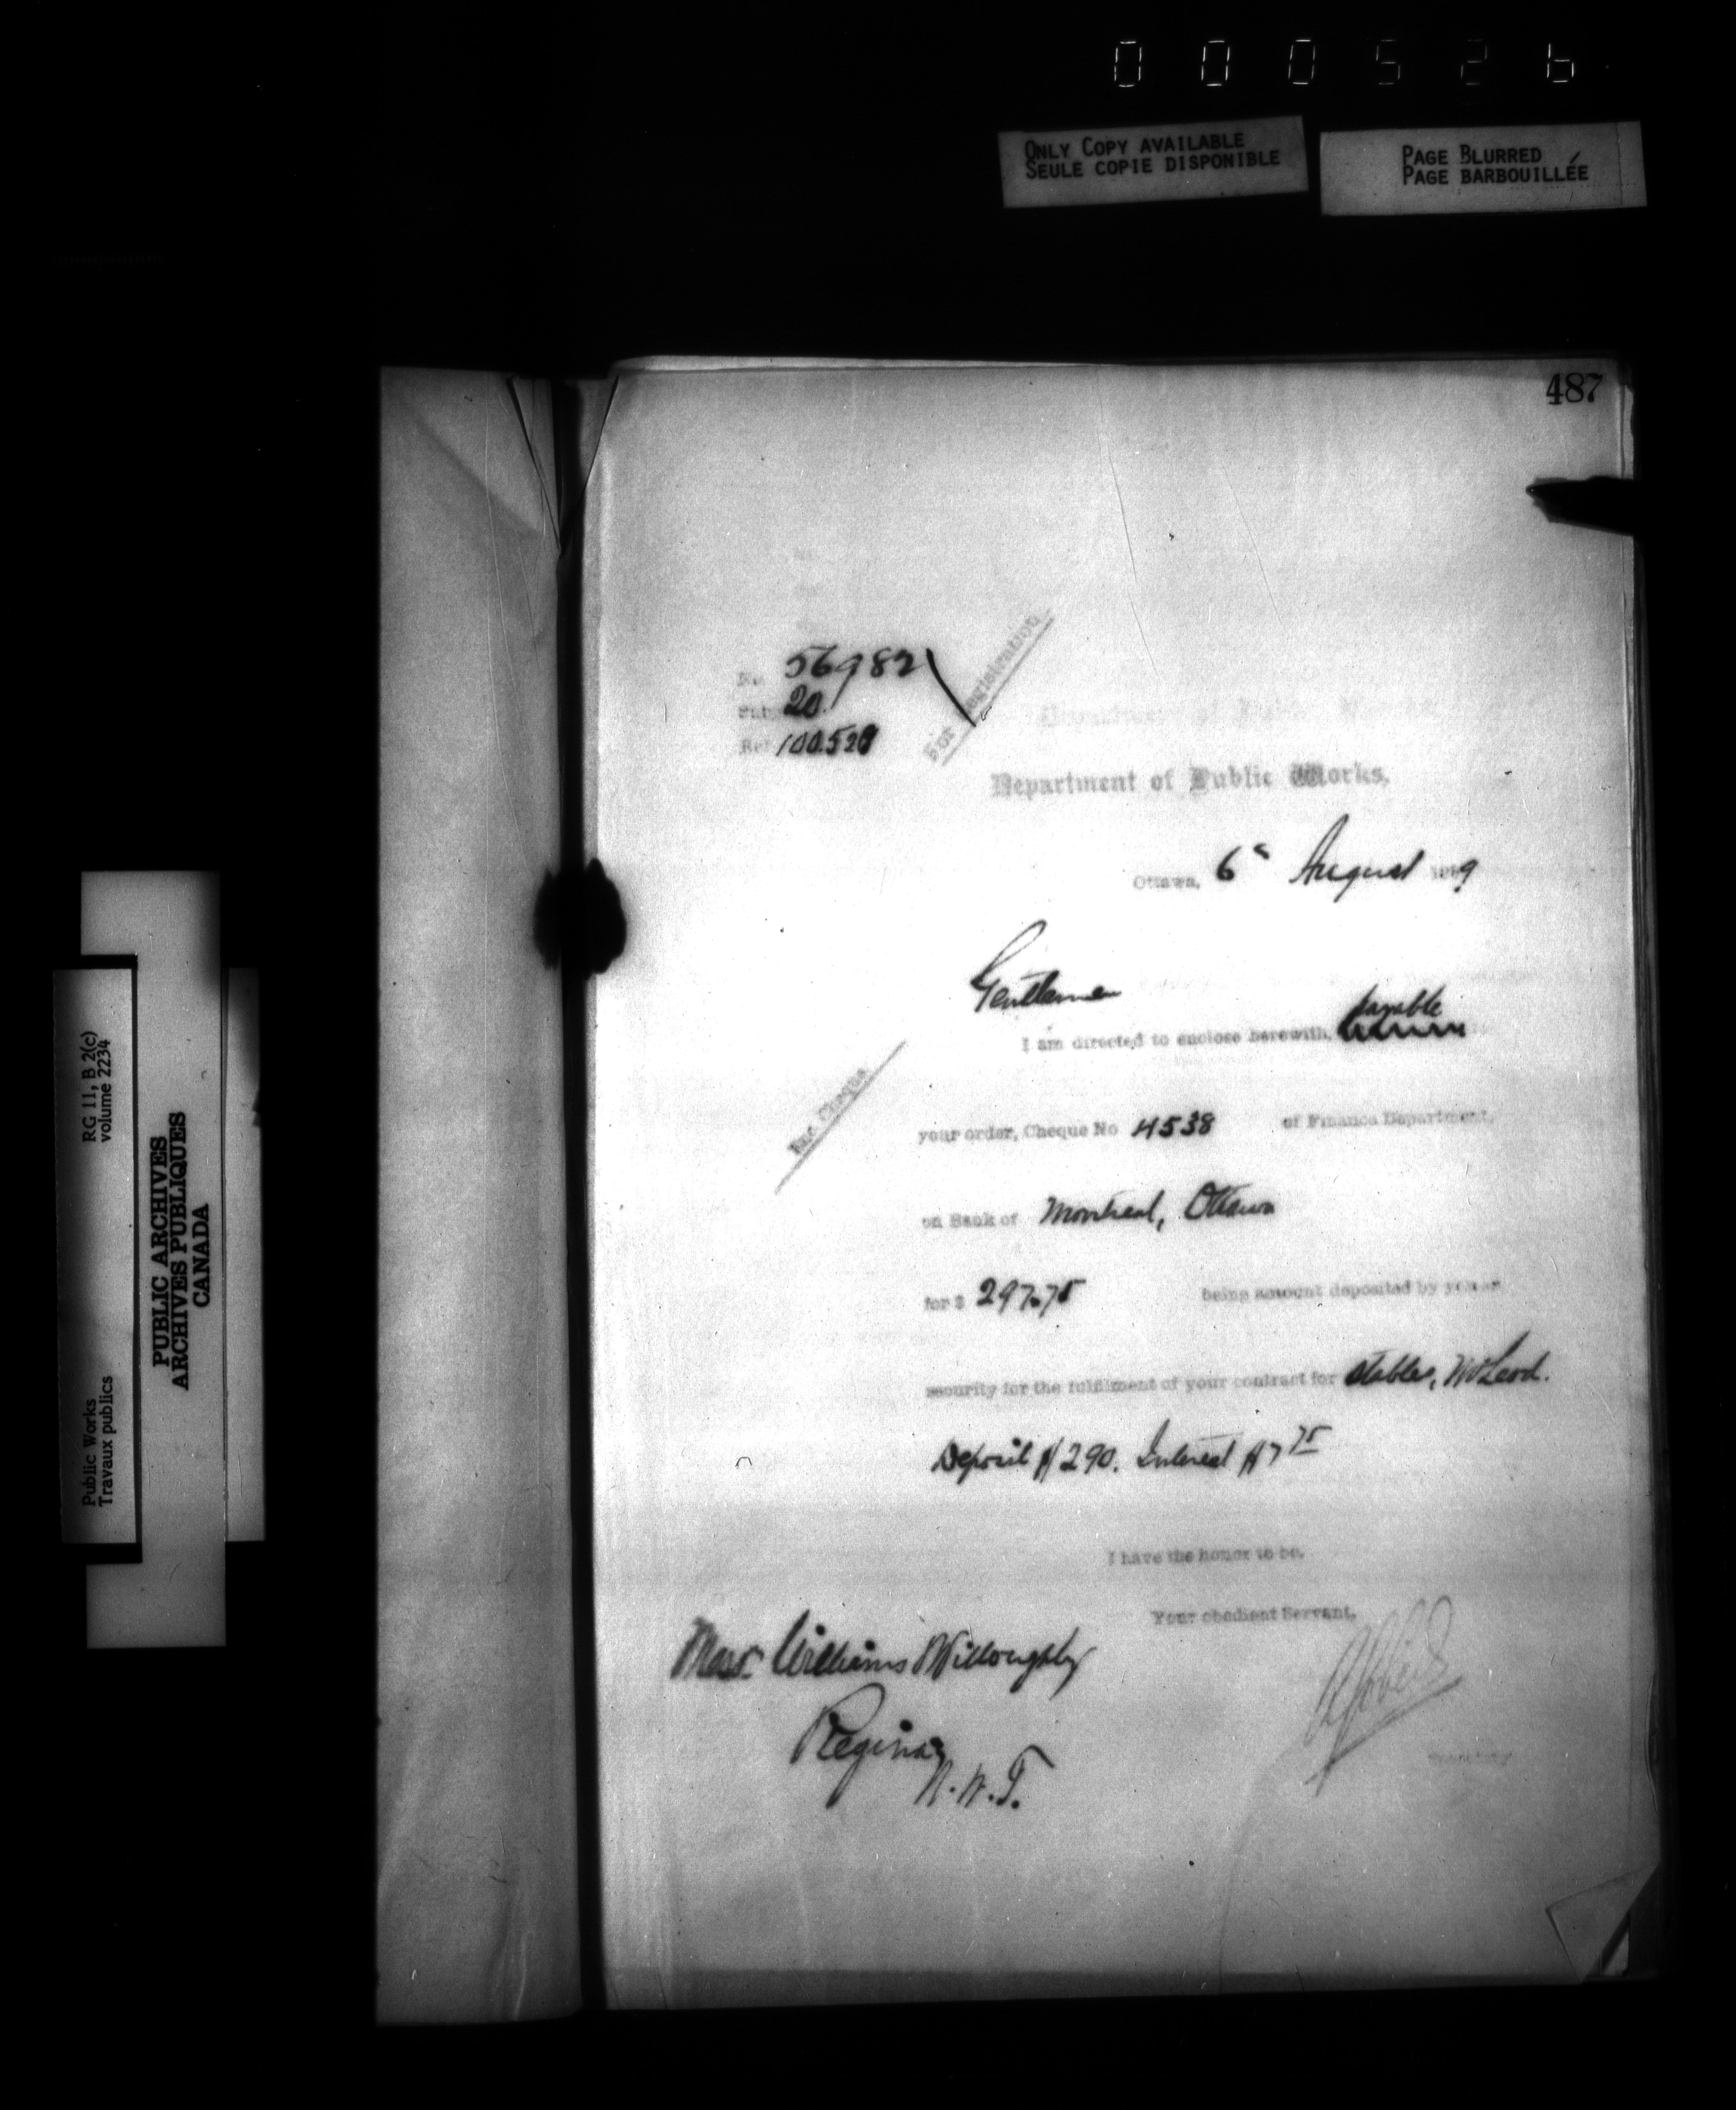 000526
ONLY COPY AVAILABLE
SEULE COPIE DISPONIBLE
PAGE BLURRED
PAGE BARBOUILLÉE
487
No. 56982
Sub. 20.
Ref. 100.528
For Registration
Department of Public Works
Department of Public Works,
Ottawa, 6th August 1889
Gentlemen
payable
I am directed to enclose herewith,
Enc. Cheque
your order, Cheque No 4538 of Finance Department,
on Bank of Montreal, Ottawa
for $ 297.75 being amount deposited by you as
security for the fulfilment of your contract for stables, McLeod.
Deposit $290. Interest $7 75
I have the honor to be,
Your obedient Servant,
Messrs. Williams Willoughby
Secretary
Regina,
N.W.T.
RG 11, B 2(c)
volume 2234
Public Works
Travaux publics
PUBLIC ARCHIVES
ARCHIVES PUBLIQUES
CANADA